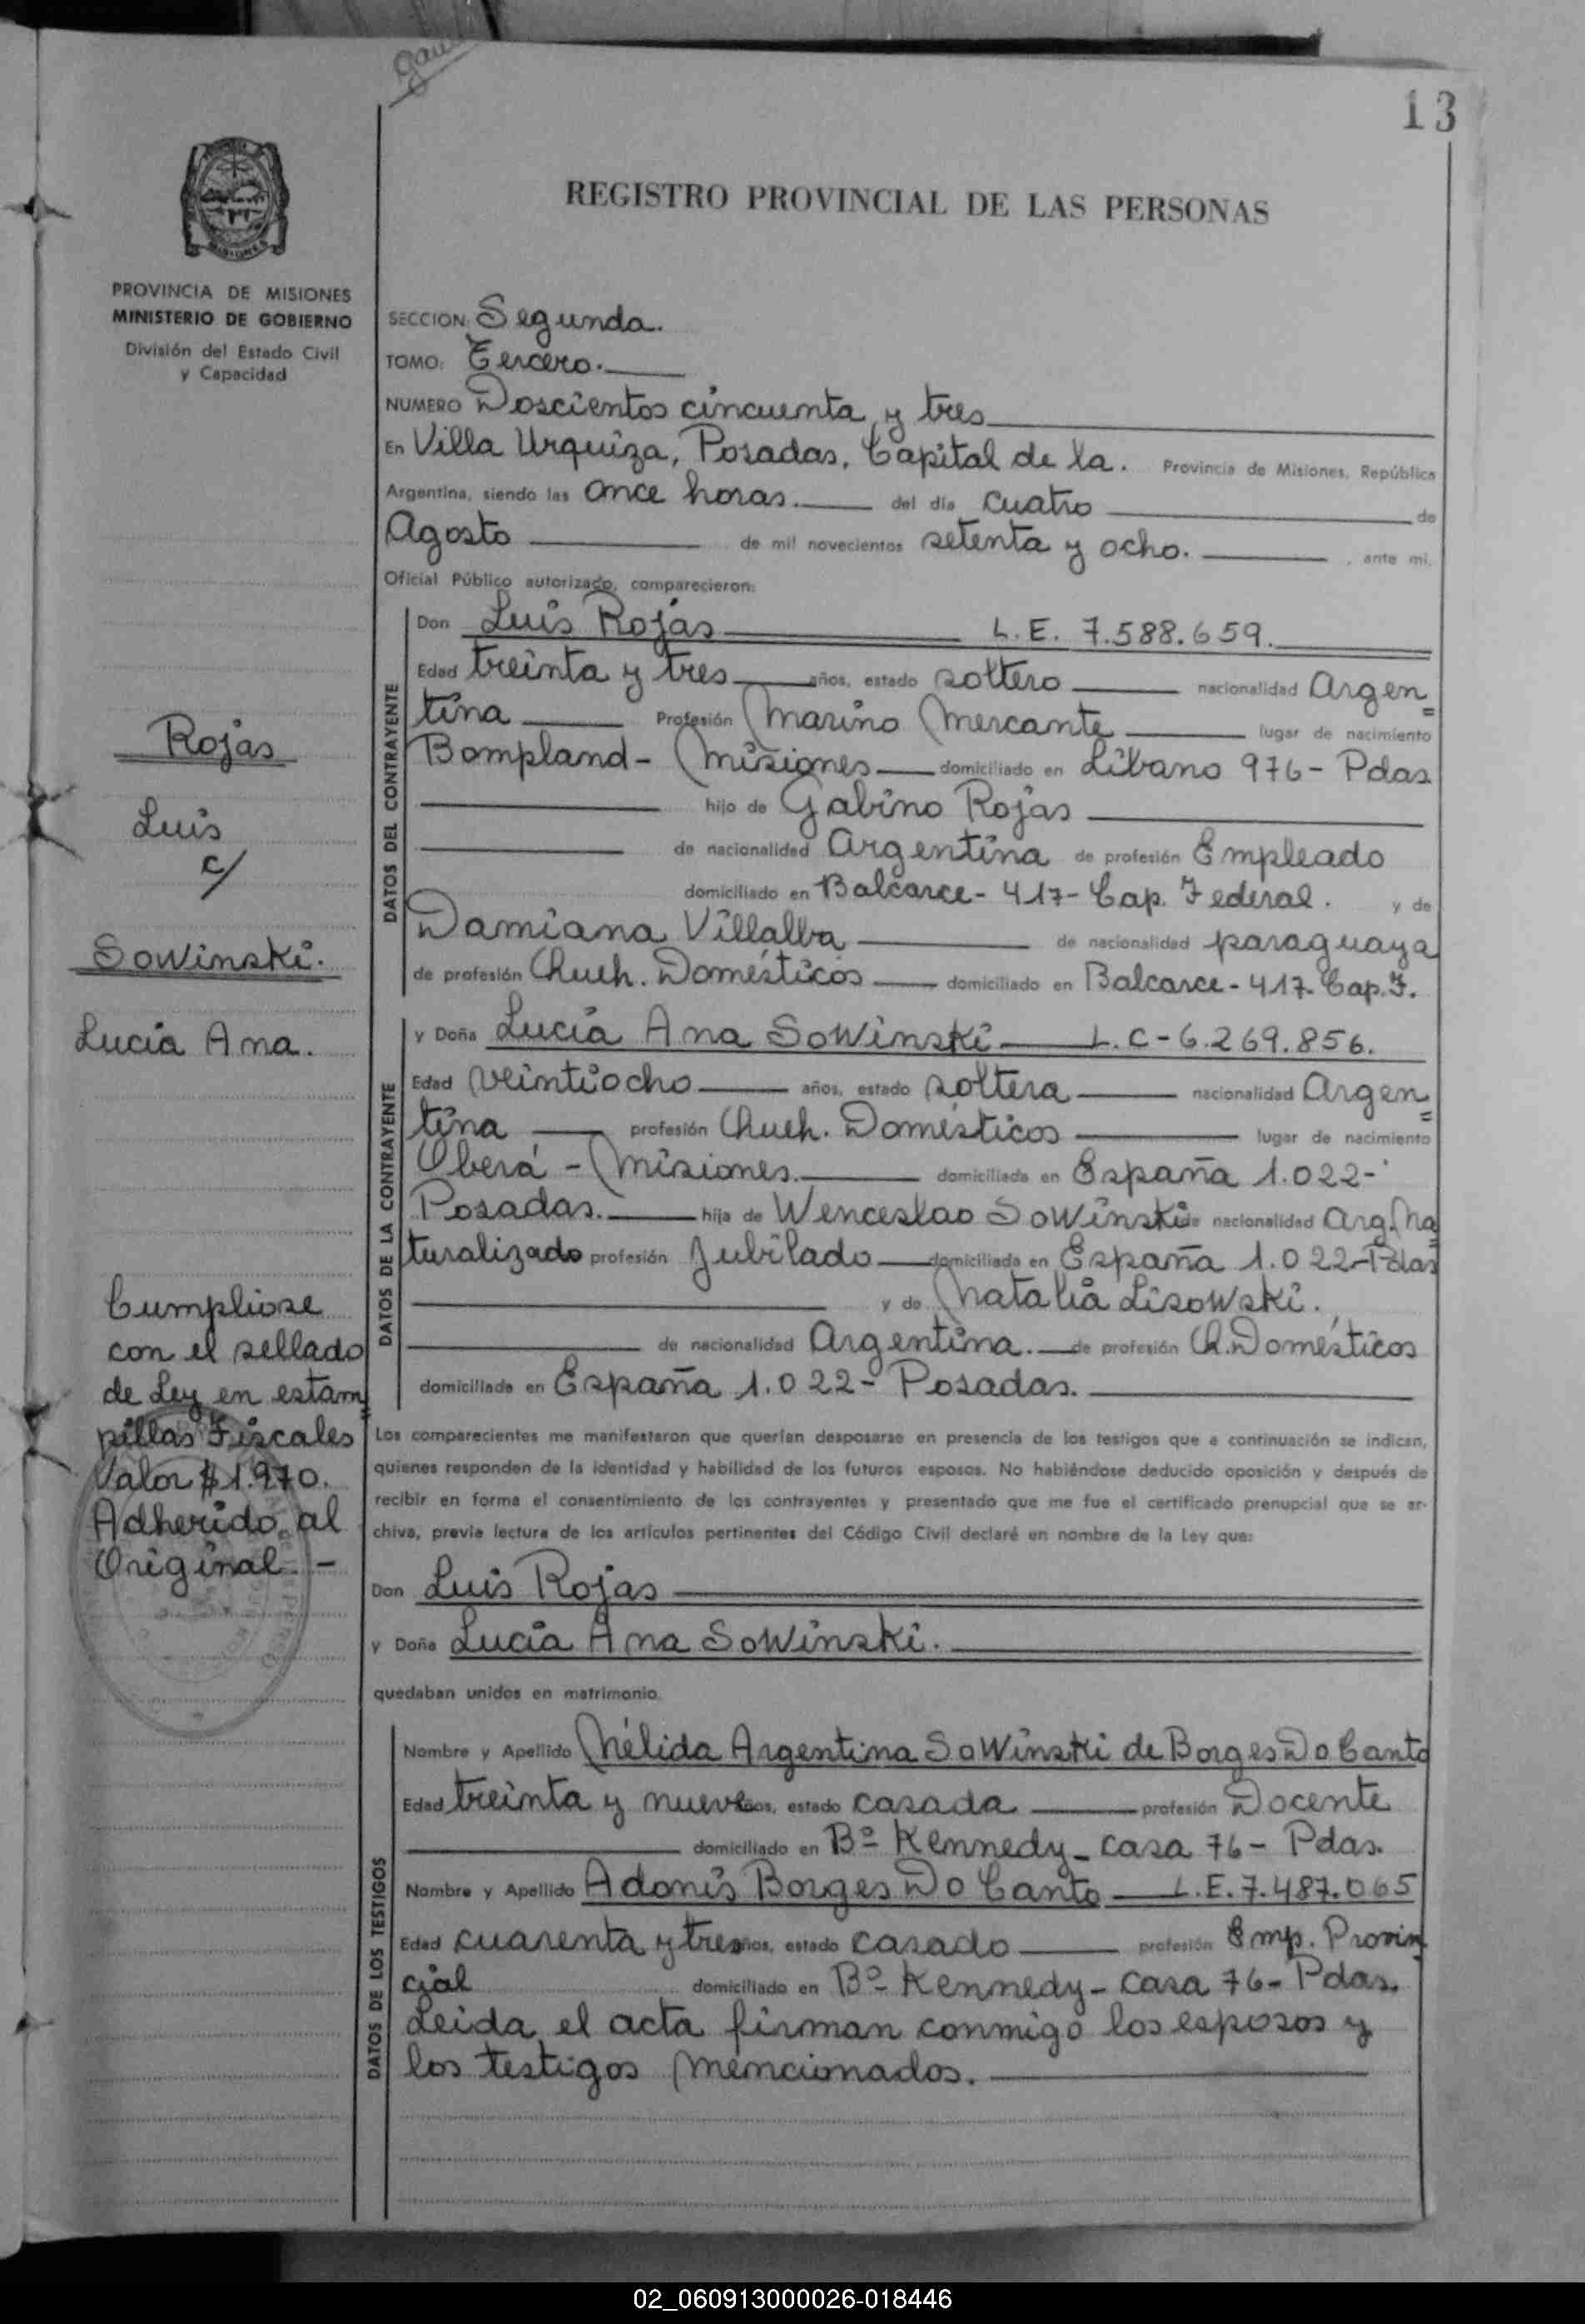 13
REGISTRO PROVINCIAL DE LAS PERSONAS
MISIONES
PROVINCIA DE MISIONES
MINISTERIO DE GOBIERNO
División del Estado Civil
y Capacidad
SECCION: Segunda.
TOMO: Tercero.
NUMERO Doscientos cincuenta y tres
En Villa Urquiza, Posadas, Capital de la. Provincia de Misiones, República
Argentina, siendo las once horas. del día cuatro de
Agosto de mil novecientos setenta y ocho. , ante mi,
Oficial Público autorizado, comparecieron:
DATOS DEL CONTRAYENTE
Don Luis Rojas L.E. 7.588.659.
Edad treinta y tres años, estado soltero nacionalidad Argen=
tina Profesión Marino Mercante lugar de nacimiento
Bompland - Misiones domiciliado en Líbano 976 - Pdas.
hijo de Gabino Rojas
de nacionalidad Argentina de profesión Empleado
domiciliado en Balcarce - 417 - Cap. Federal. y de
Damiana Villalba de nacionalidad paraguaya
de profesión Queh. Domésticos domiciliado en Balcarce - 417. Cap. F.
DATOS DE LA CONTRAYENTE
y Doña Lucía Ana Sowinski L.C - 6.269.856.
Edad veintiocho años, estado soltera nacionalidad Argen=
tina profesión Queh. Domésticos lugar de nacimiento
Oberá - Misiones. domiciliada en España 1.022 -
Posadas. hija de Wenceslao Sowinski de nacionalidad Arg. Na
turalizado profesión Jubilado domiciliado en España 1.022 - Pdas
y de Natalia Lisowski.
de nacionalidad Argentina. de profesión Q. Domésticos
domiciliada en España 1.022 - Posadas.
Los comparecientes me manifestaron que querían desposarse en presencia de los testigos que a continuación se indican,
quienes responden de la identidad y habilidad de los futuros esposos. No habiéndose deducido oposición y después de
recibir en forma el consentimiento de los contrayentes y presentado que me fue el certificado prenupcial que se ar-
chiva, previa lectura de los artículos pertinentes del Código Civil declaré en nombre de la Ley que:
Don Luis Rojas
y Doña Lucía Ana Sowinski.
quedaban unidos en matrimonio.
DATOS DE LOS TESTIGOS
Nombre y Apellido Nélida Argentina Sowinski de Borges Do Canto
Edad treinta y nueve años, estado casada profesión Docente
domiciliado en Bº Kennedy - casa 76 - Pdas.
Nombre y Apellido Adonis Borges Do Canto L.E. 7.487.065
Edad cuarenta y tres años, estado casado profesión Emp. Provin
cial domiciliado en Bº Kennedy - casa 76 - Pdas.
Leida el acta firman conmigo los esposos y
los testigos mencionados.
Rojas
Luis
c/
Sowinski.
Lucía Ana.
Cumpliose
con el sellado
de Ley en estam
pillas Fiscales
Valor $ 1.970.
Adherido al
Original. -
02_060913000026-018446